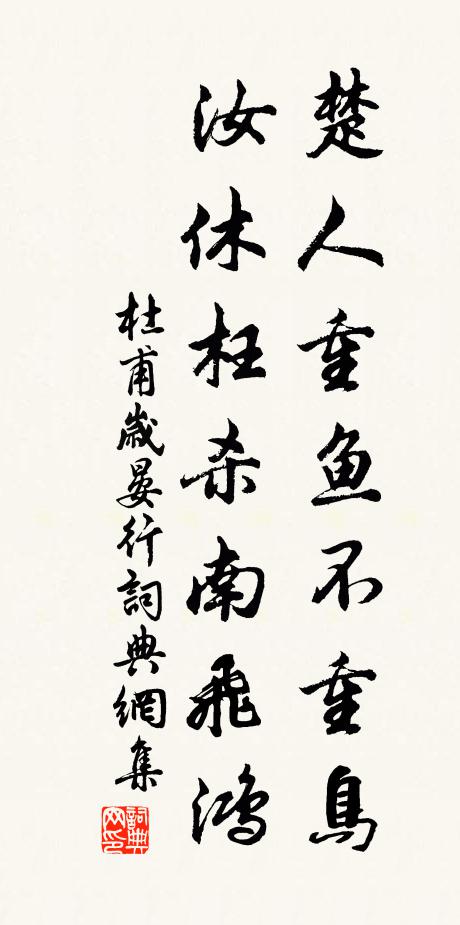 楚人重鱼不重鳥
汝休枉杀南飛鴻
杜甫歲晏行詞典網集
詞典
网印